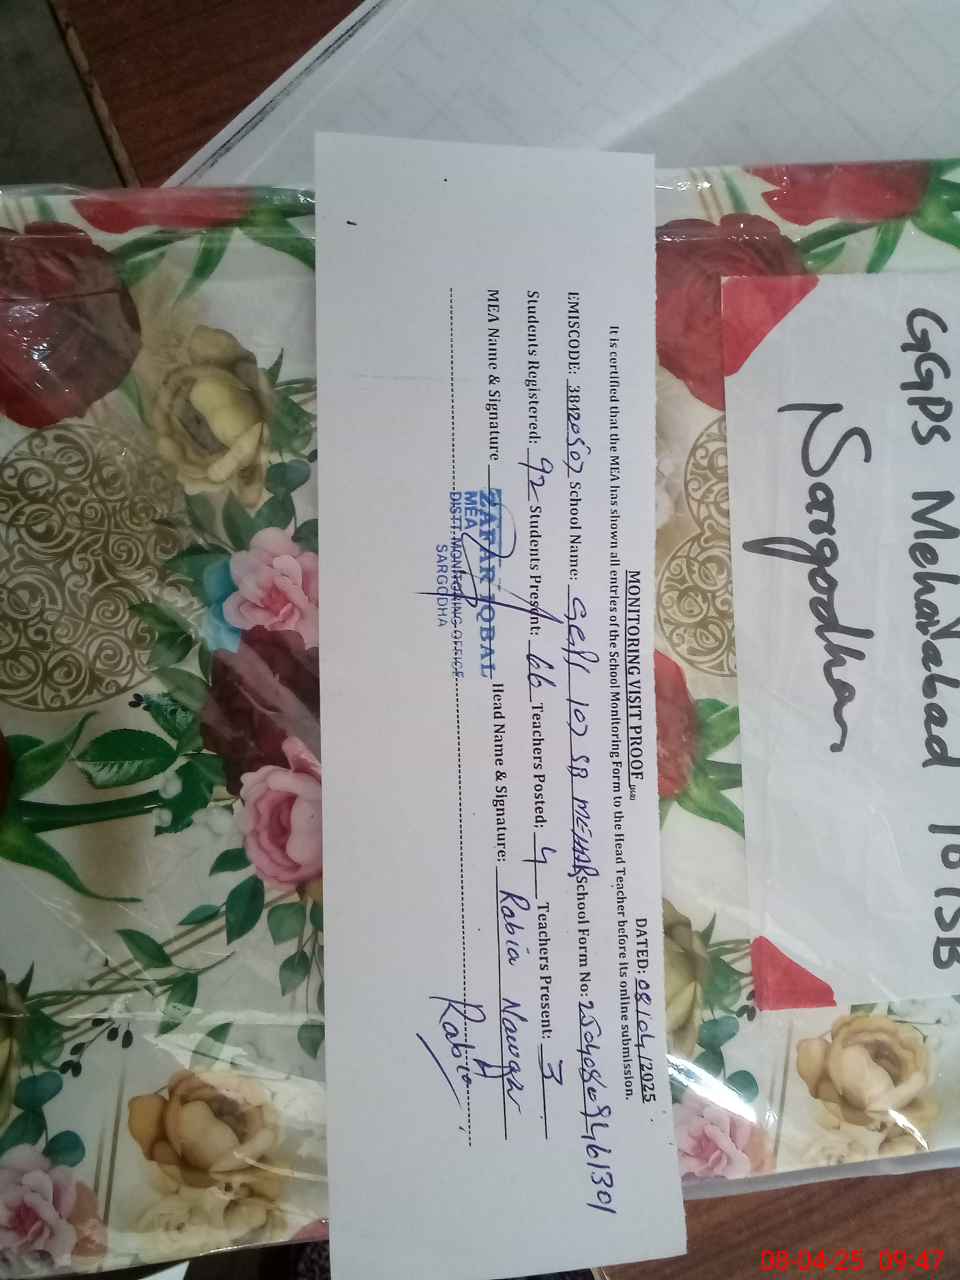 GGPS Mehar abad 107SB
Sargodha
MONITORING VISIT PROOF DATED: 08/04/2025
It is certified that the MEA has shown all entries of the School Monitoring Form to the Head Teacher before its online submission.
EMISCODE: 38420507 School Name: 107 SB MEHAR School Form No:
Students Registered: 92 Students Present: 66 Teachers Posted; 4 Teachers Present: 3
MEA Name & Signature ZAFAR IQBAL Head Name & Signature; Rabia
MEA
DISTT. MONITORING OFFICE
SARGODHA
Rabia
08-04-25 09:47